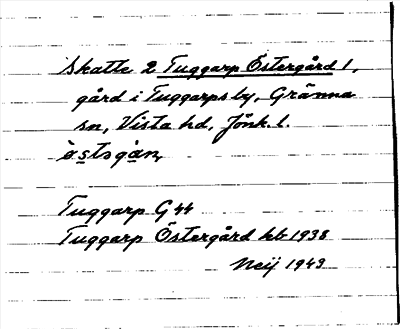 Skatte 2 Tuggarp Östergård 1,
gård i Tuggarps by, Gränna
sn, Vista hd, Jönk. l.
östəgàṇ
Tuggarp G 44
Tuggarp Östergård kb 1938
Neij 1943